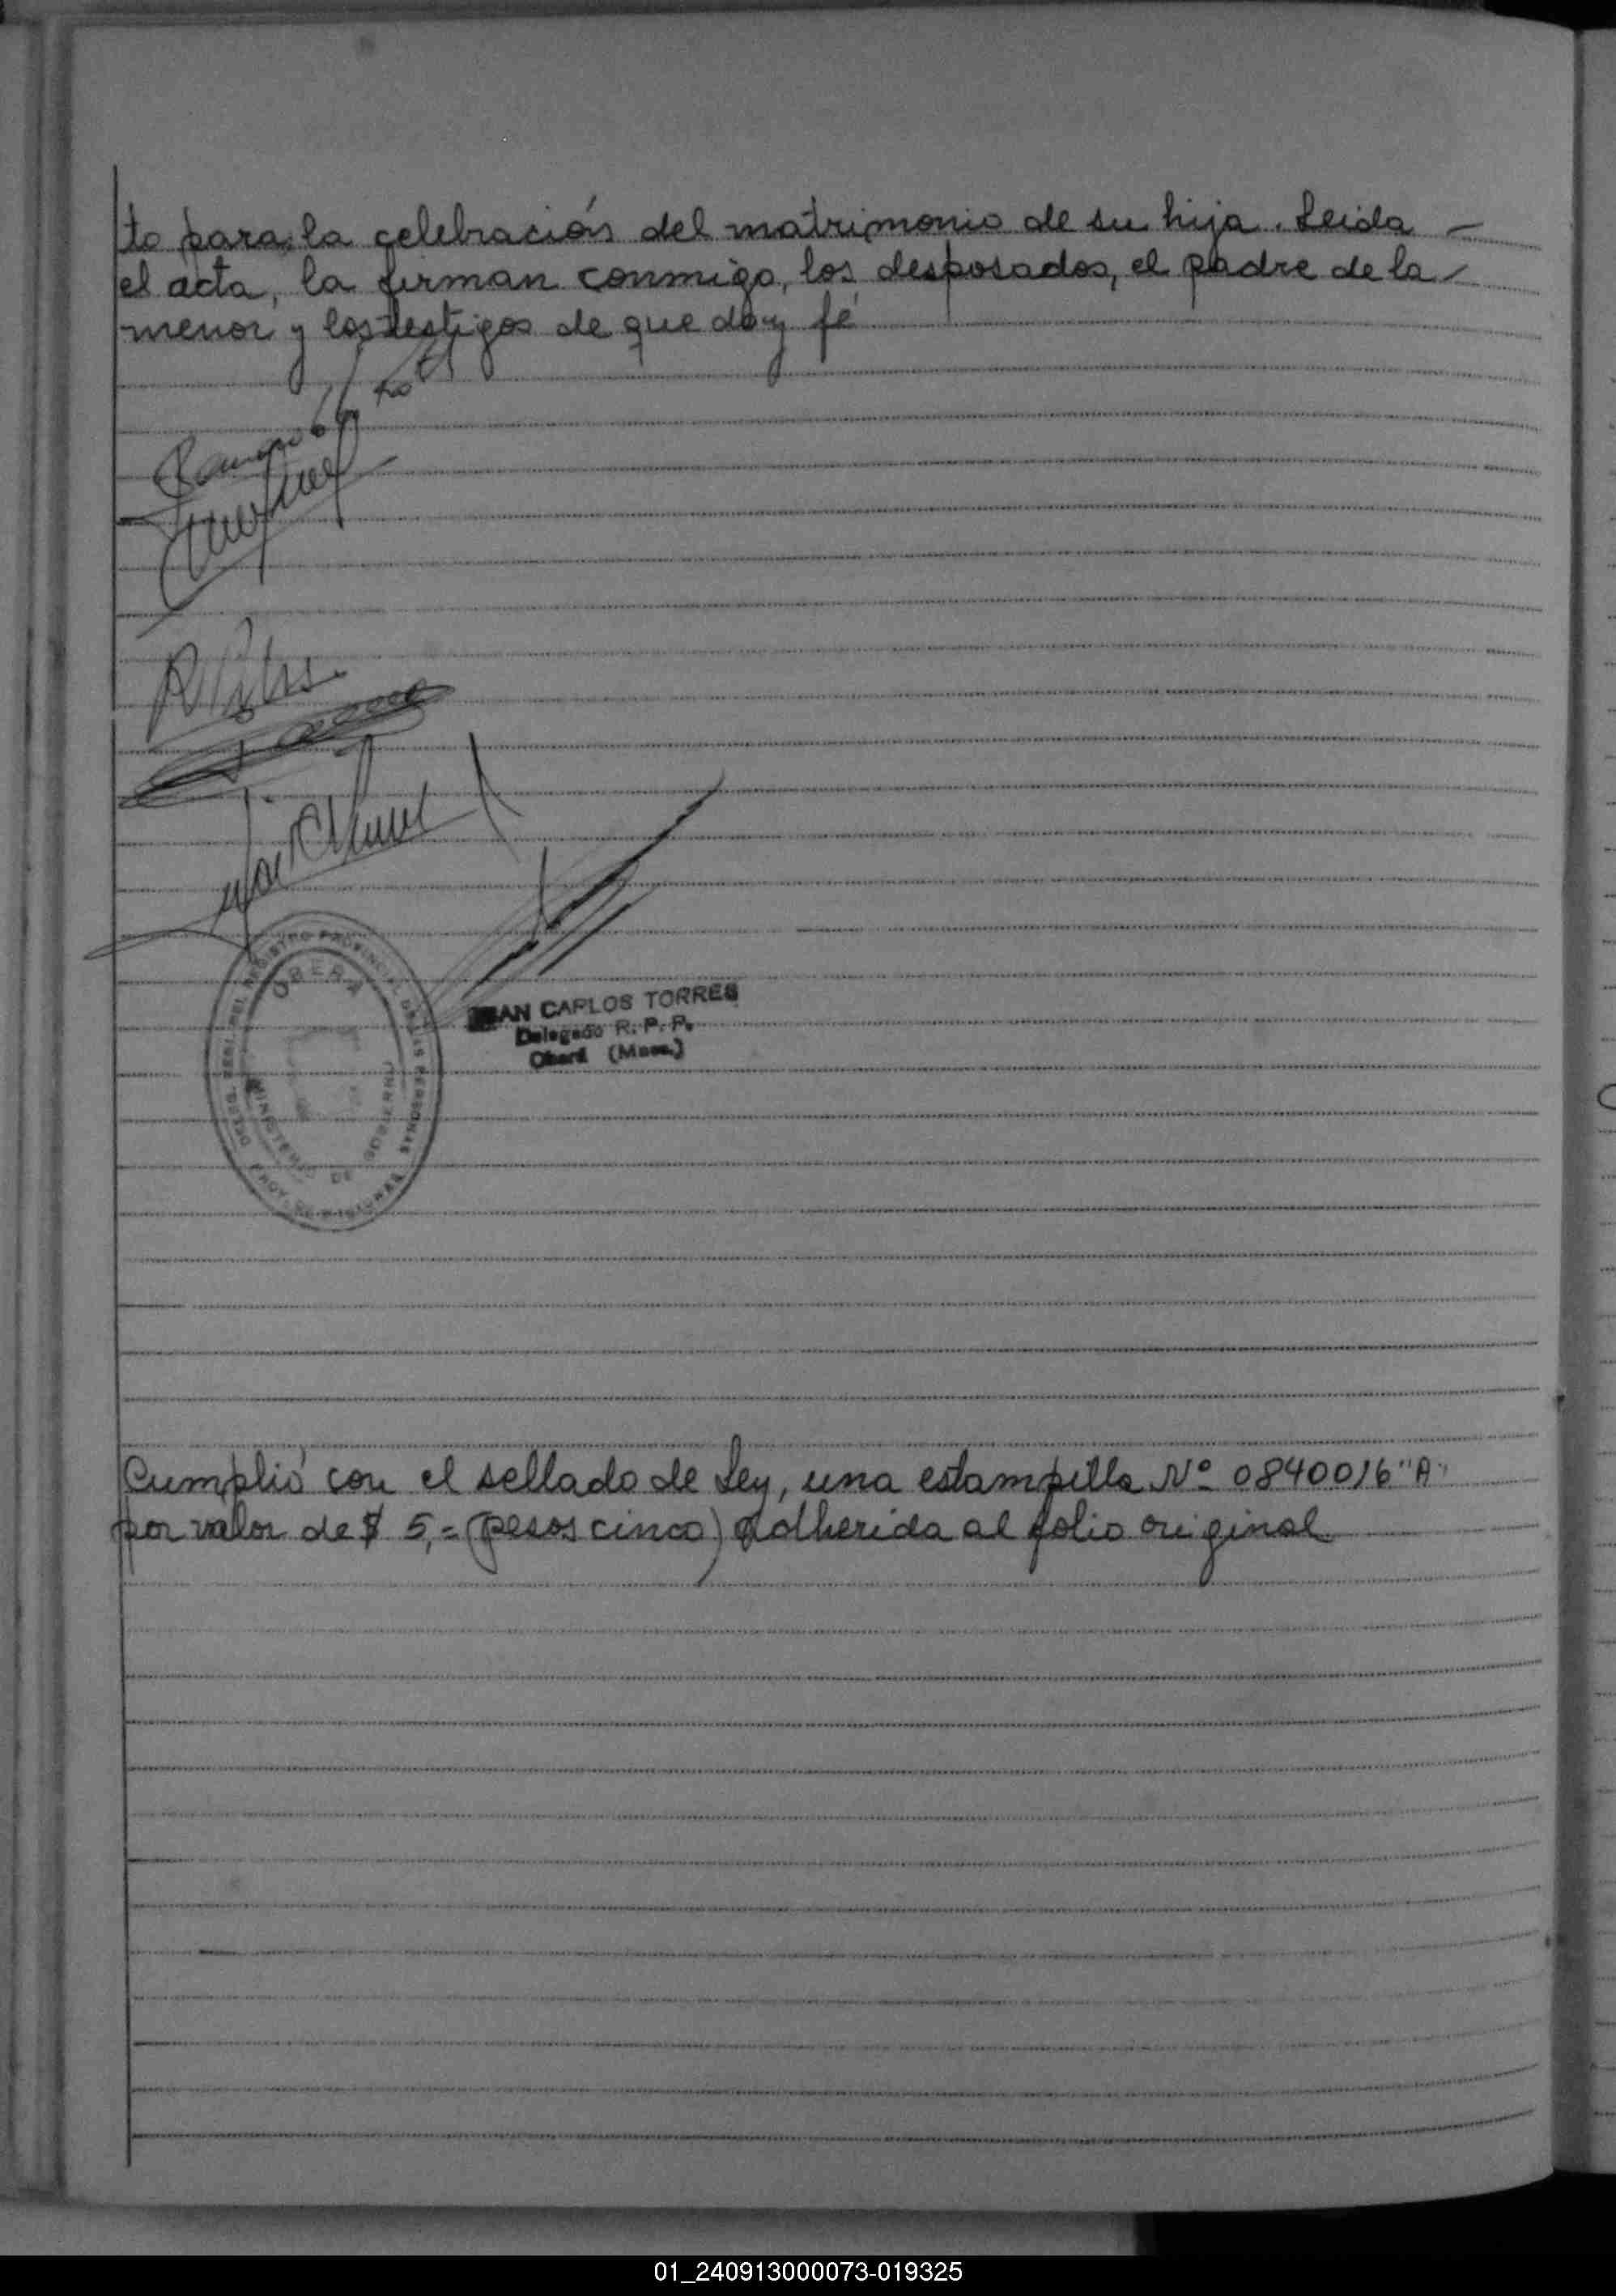 to para la celebración del matrimonio de su hija. Leida —
el acta, la firman conmigo, los desposados, el padre de la —
menor y los testigos de que doy fé
OBERA
REGISTRO PROVINCIAL DE LAS PERSONAS
MINISTERIO DE GOBIERNO
PROV. DE MISIONES
AN CARLOS TORRES
Delegado R. P. P.
Oberá (Mnes.)
Cumplió con el sellado de Ley, una estampilla Nº 0840016 "A"
por valor de $ 5,= (pesos cinco) adherida al folio original
01_240913000073-019325